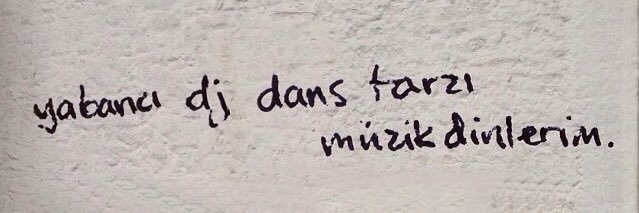 yabancı dj dans tarzı
müzik dinlerim.